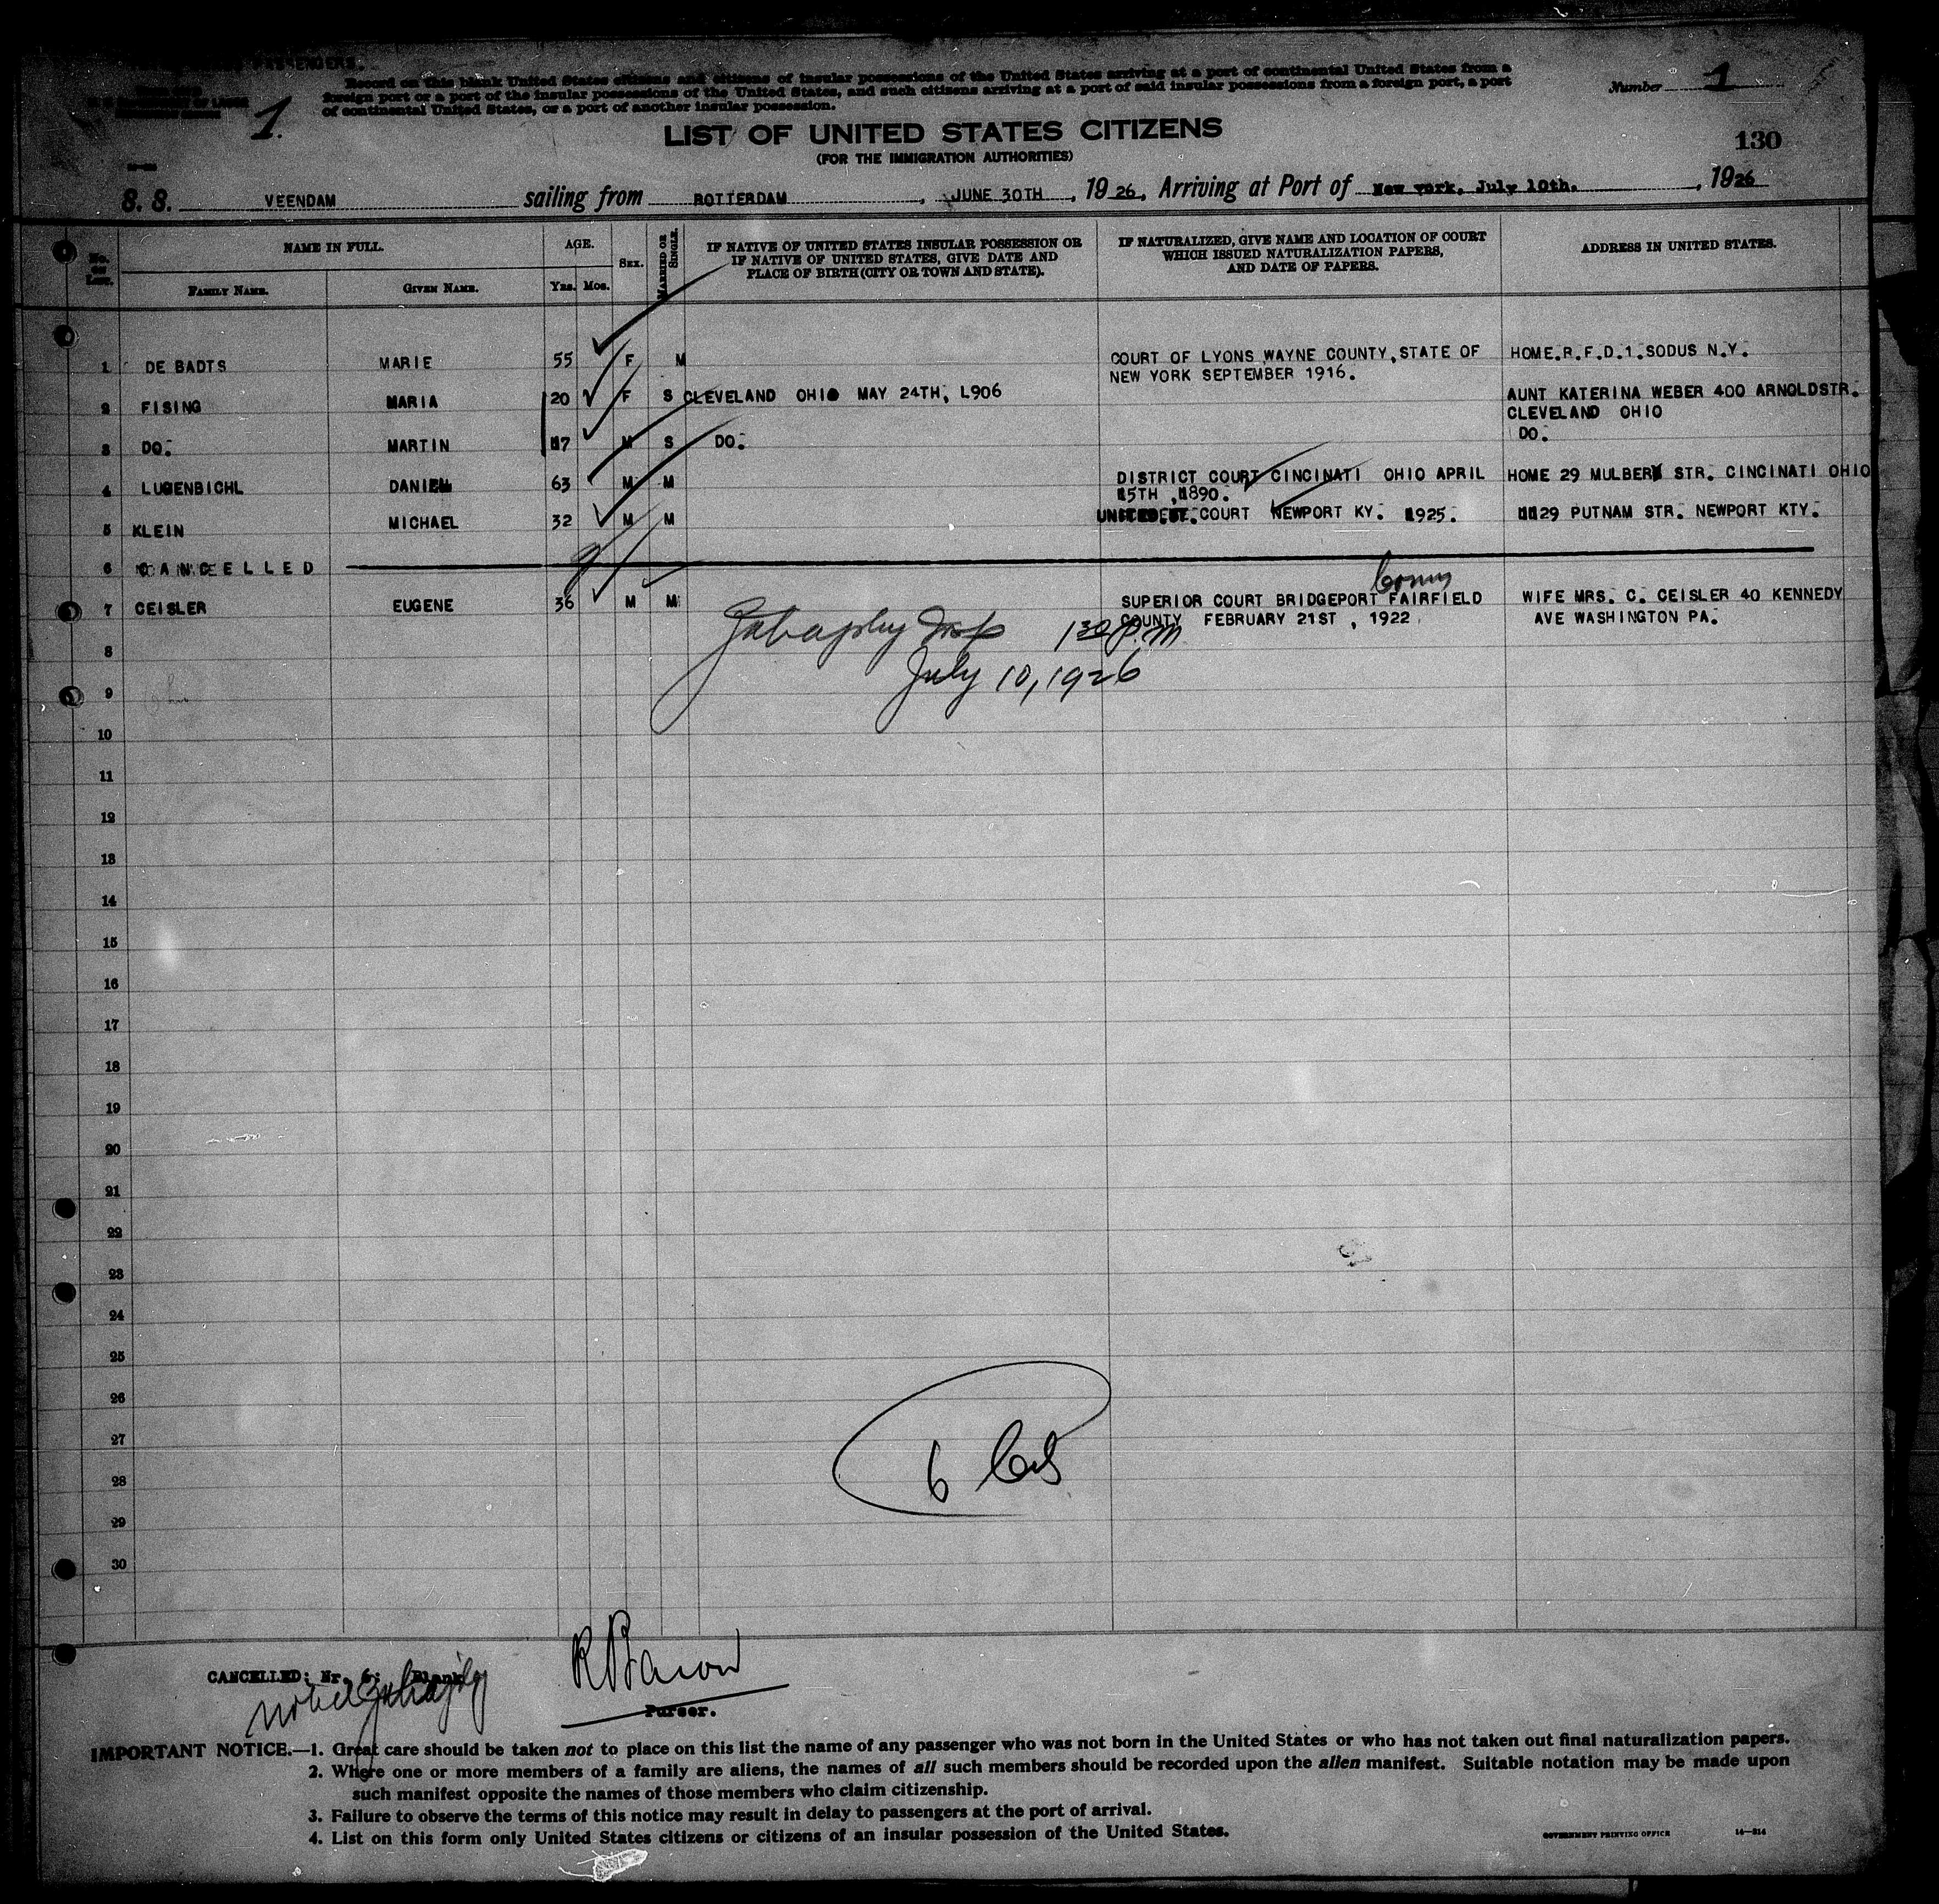 PASSENGERS.
Record on this blank United States citizens and citizens of insular possessions of the United States arriving at a port of continental United States from a
foreign port or a port of the insular possessions of the United States, and such citizens arriving at a port of said insular possessions from a foreign port, a port
of continental United States, or a port of another insular possession.
Number 1
1.
LIST OF UNITED STATES CITIZENS
(FOR THE IMMIGRATION AUTHORITIES)
130
S. S. VEENDAM sailing from ROTTERDAM, JUNE 30TH, 1926, Arriving at Port of New york, July 10th., 1926
No. on List. NAME IN FULL. AGE. SEX. MARRIED OR SINGLE. IF NATIVE OF UNITED STATES INSULAR POSSESSION OR IF NATIVE OF UNITED STATES, GIVE DATE AND PLACE OF BIRTH (CITY OR TOWN AND STATE). IF NATURALIZED, GIVE NAME AND LOCATION OF COURT WHICH ISSUED NATURALIZATION PAPERS, AND DATE OF PAPERS. ADDRESS IN UNITED STATES.
FAMILY NAME. GIVEN NAME. Yrs. Mos.
1 DE BADTS MARIE 55 F M COURT OF LYONS WAYNE COUNTY, STATE OF HOME.R.F.D.1.SODUS N.Y.
NEW YORK SEPTEMBER 1916.
2 FISING MARIA 20 F S CLEVELAND OHIO MAY 24TH, L906 AUNT KATERINA WEBER 400 ARNOLDSTR.
CLEVELAND OHIO
3 DO. MARTIN 17 M S DO. DO.
4 LUGENBICHL DANIEL 63 M M DISTRICT COURT CINCINATI OHIO APRIL HOME 29 MULBERY STR. CINCINATI OHIO
15TH, 1890.
5 KLEIN MICHAEL 32 M M COURT NEWPORT KY. 1925. 1129 PUTNAM STR. NEWPORT KTY.
6 CANCELLED
Conn
7 GEISLER EUGENE 36 M M SUPERIOR COURT BRIDGEPORT FAIRFIELD WIFE MRS. C. GEISLER 40 KENNEDY
COUNTY FEBRUARY 21ST, 1922. AVE WASHINGTON PA.
Insp 1 30 P.M
8
July 10, 1926
9
10
11
12
13
14
15
16
17
18
19
20
21
22
23
24
25
26
27
28
29
30
6
CANCELLED: Nr. 6: Blank
Purser.
IMPORTANT NOTICE.—1. Great care should be taken not to place on this list the name of any passenger who was not born in the United States or who has not taken out final naturalization papers.
2. Where one or more members of a family are aliens, the names of all such members should be recorded upon the alien manifest. Suitable notation may be made upon
such manifest opposite the names of those members who claim citizenship.
3. Failure to observe the terms of this notice may result in delay to passengers at the port of arrival.
4. List on this form only United States citizens or citizens of an insular possession of the United States.
GOVERNMENT PRINTING OFFICE 14—214